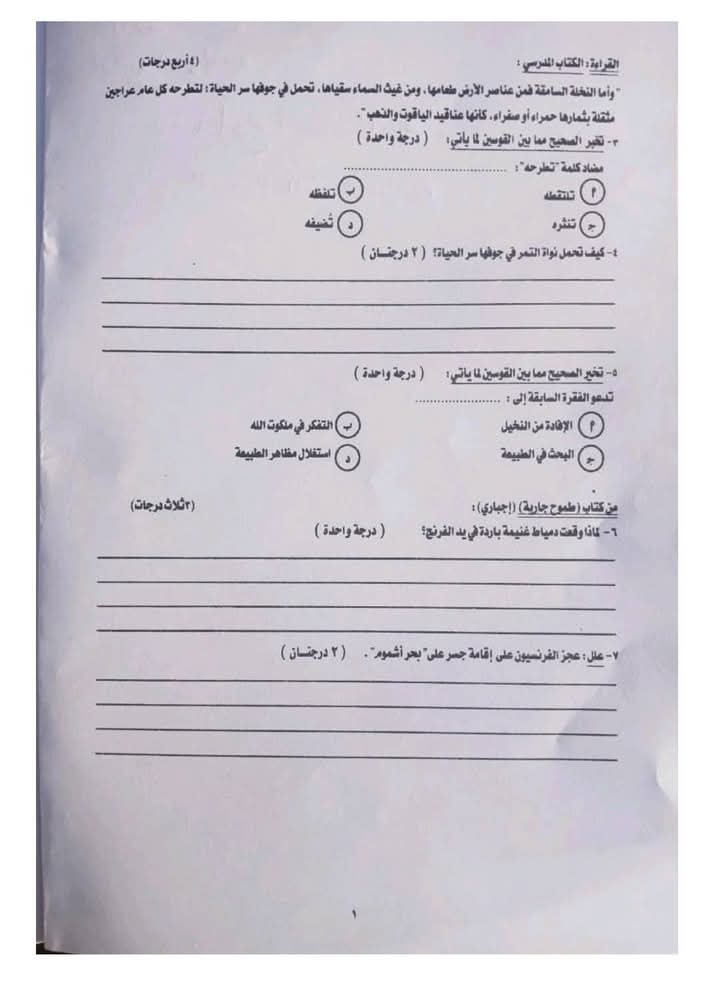 القراءة: الكتاب المدرسي: (٤ أربع درجات)
"وأما النخلة السامقة فمن عناصر الأرض طعامها، ومن غيث السماء سقياها، تحمل في جوفها سر الحياة؛ لتطرحه كل عام عراجين
مثقلة بثمارها حمراء أو صفراء، كأنها عناقيد الياقوت والذهب".
٣- تخير الصحيح مما بين القوسين لما يأتي: ( درجة واحدة )
مضاد كلمة "تطرحه": ......................................
أ تلتقطه ب تلفظه
ج تنثره د تُضيفه
٤- كيف تحمل نواة التمر في جوفها سر الحياة؟ ( ٢ درجتسان )
٥- تخير الصحيح مما بين القوسين لما يأتي: ( درجة واحدة )
تدعو الفقرة السابقة إلى: ....................
أ الإفادة من النخيل ب التفكر في ملكوت الله
ج البحث في الطبيعة د استغلال مظاهر الطبيعة
من كتاب (طموح جارية) (إجباري): (٣ ثلاث درجات)
٦- لماذا وقعت دمياط غنيمة باردة في يد الفرنج؟ ( درجة واحدة )
٧- علل: عجز الفرنسيون على إقامة جسر على "بحر أشموم". ( ٢ درجتسان )
١